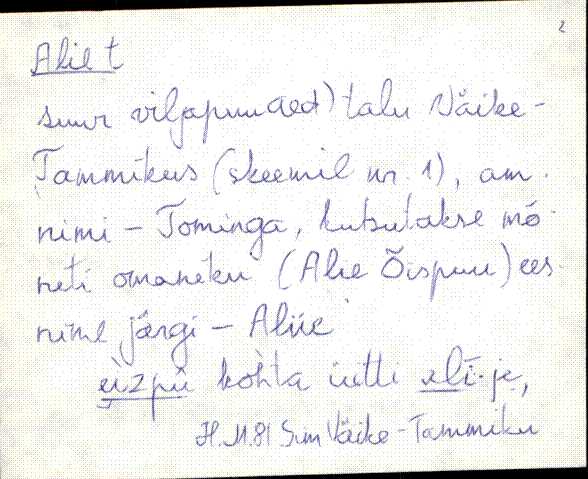 2
Alie t
suur viljapuuaed) talu Väike-
Tammikus (skeemil nr. 1), am.
nimi - Tominga, kutsutakse mõ-
neti omaneku (Alie Õispuu) ees-
nime järgi - Aliie
eizpū kohta üitti elī·je,
H.M.81 Sim Väike-Tammiku